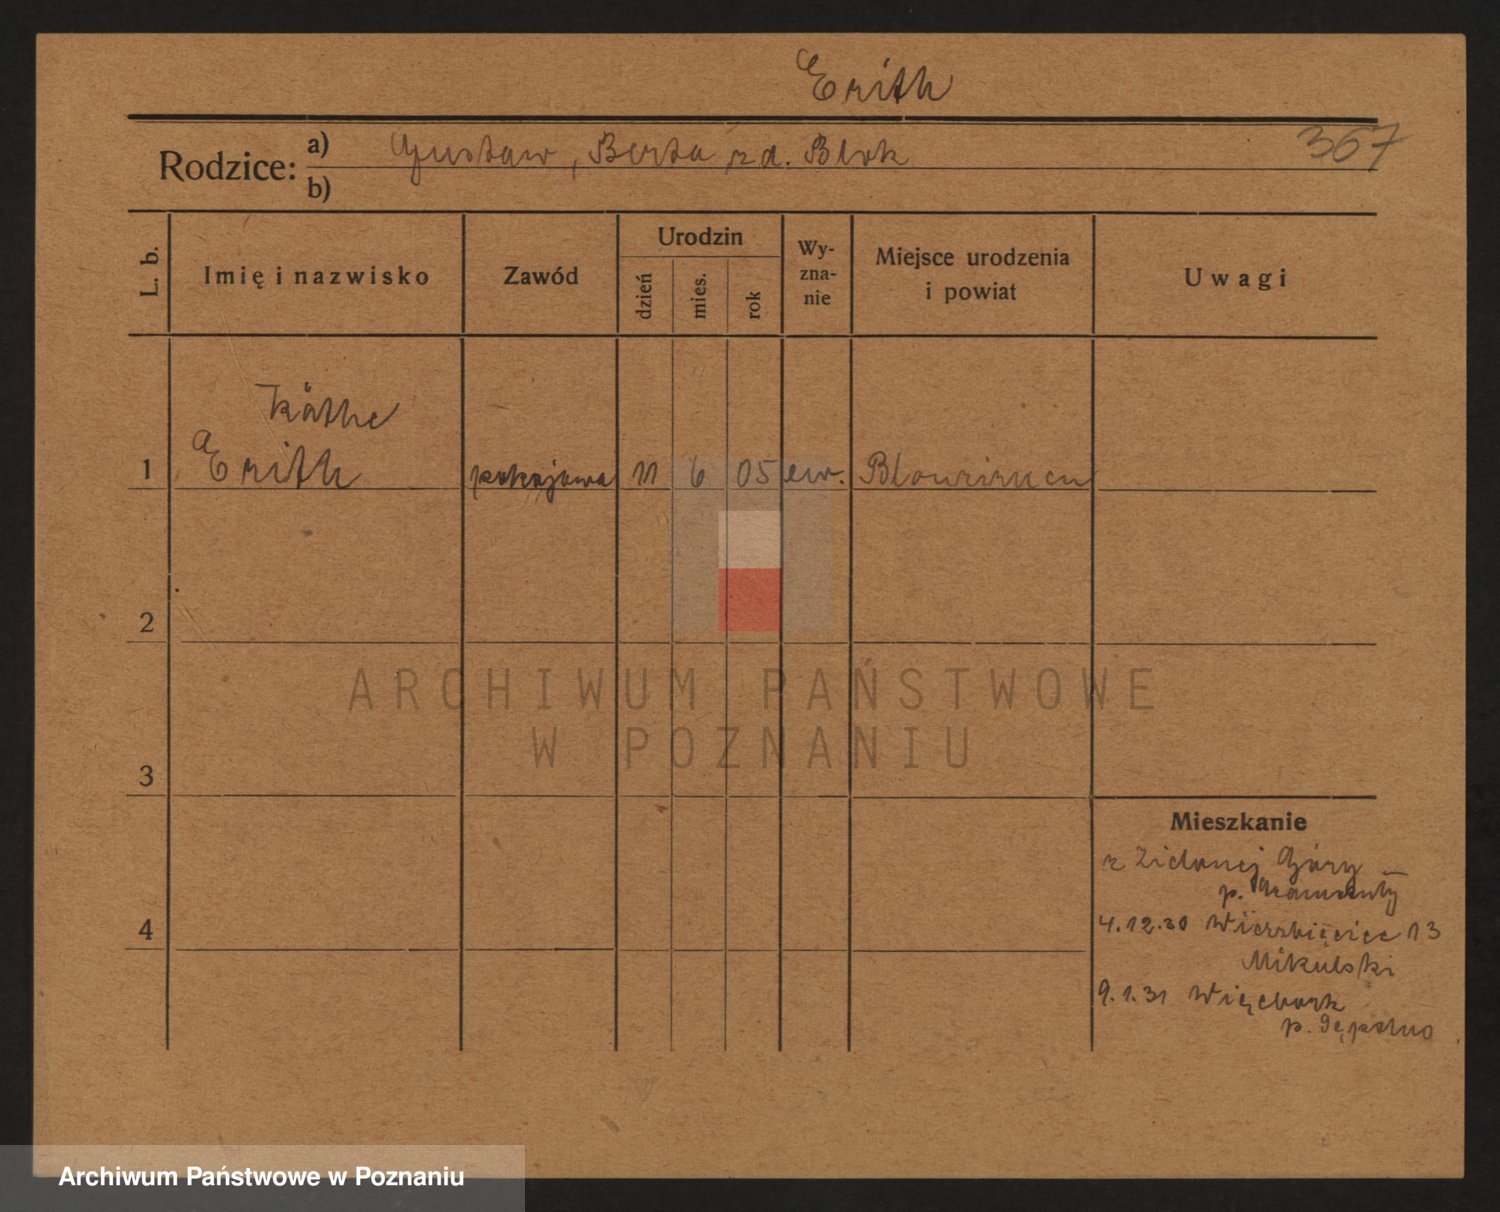 Erith
Rodzice: a) Gustaw, Berta zd. Blok
367
b)
L. b.
Imię i nazwisko
Zawód
Urodzin
dzień
mies.
rok
Wy-
zna-
nie
Miejsce urodzenia
i powiat
Uwagi
Käthe
1 Erith pokojowa 11 6 05 ew.
2
3
4
Mieszkanie
z Zielonej Góry
p.
4.12.30 Wierzbięcice 13
Mikulski
9.1.31 Więcbork
p. Sępolno
ARCHIWUM PAŃSTWOWE
W POZNANIU
Archiwum Państwowe w Poznaniu